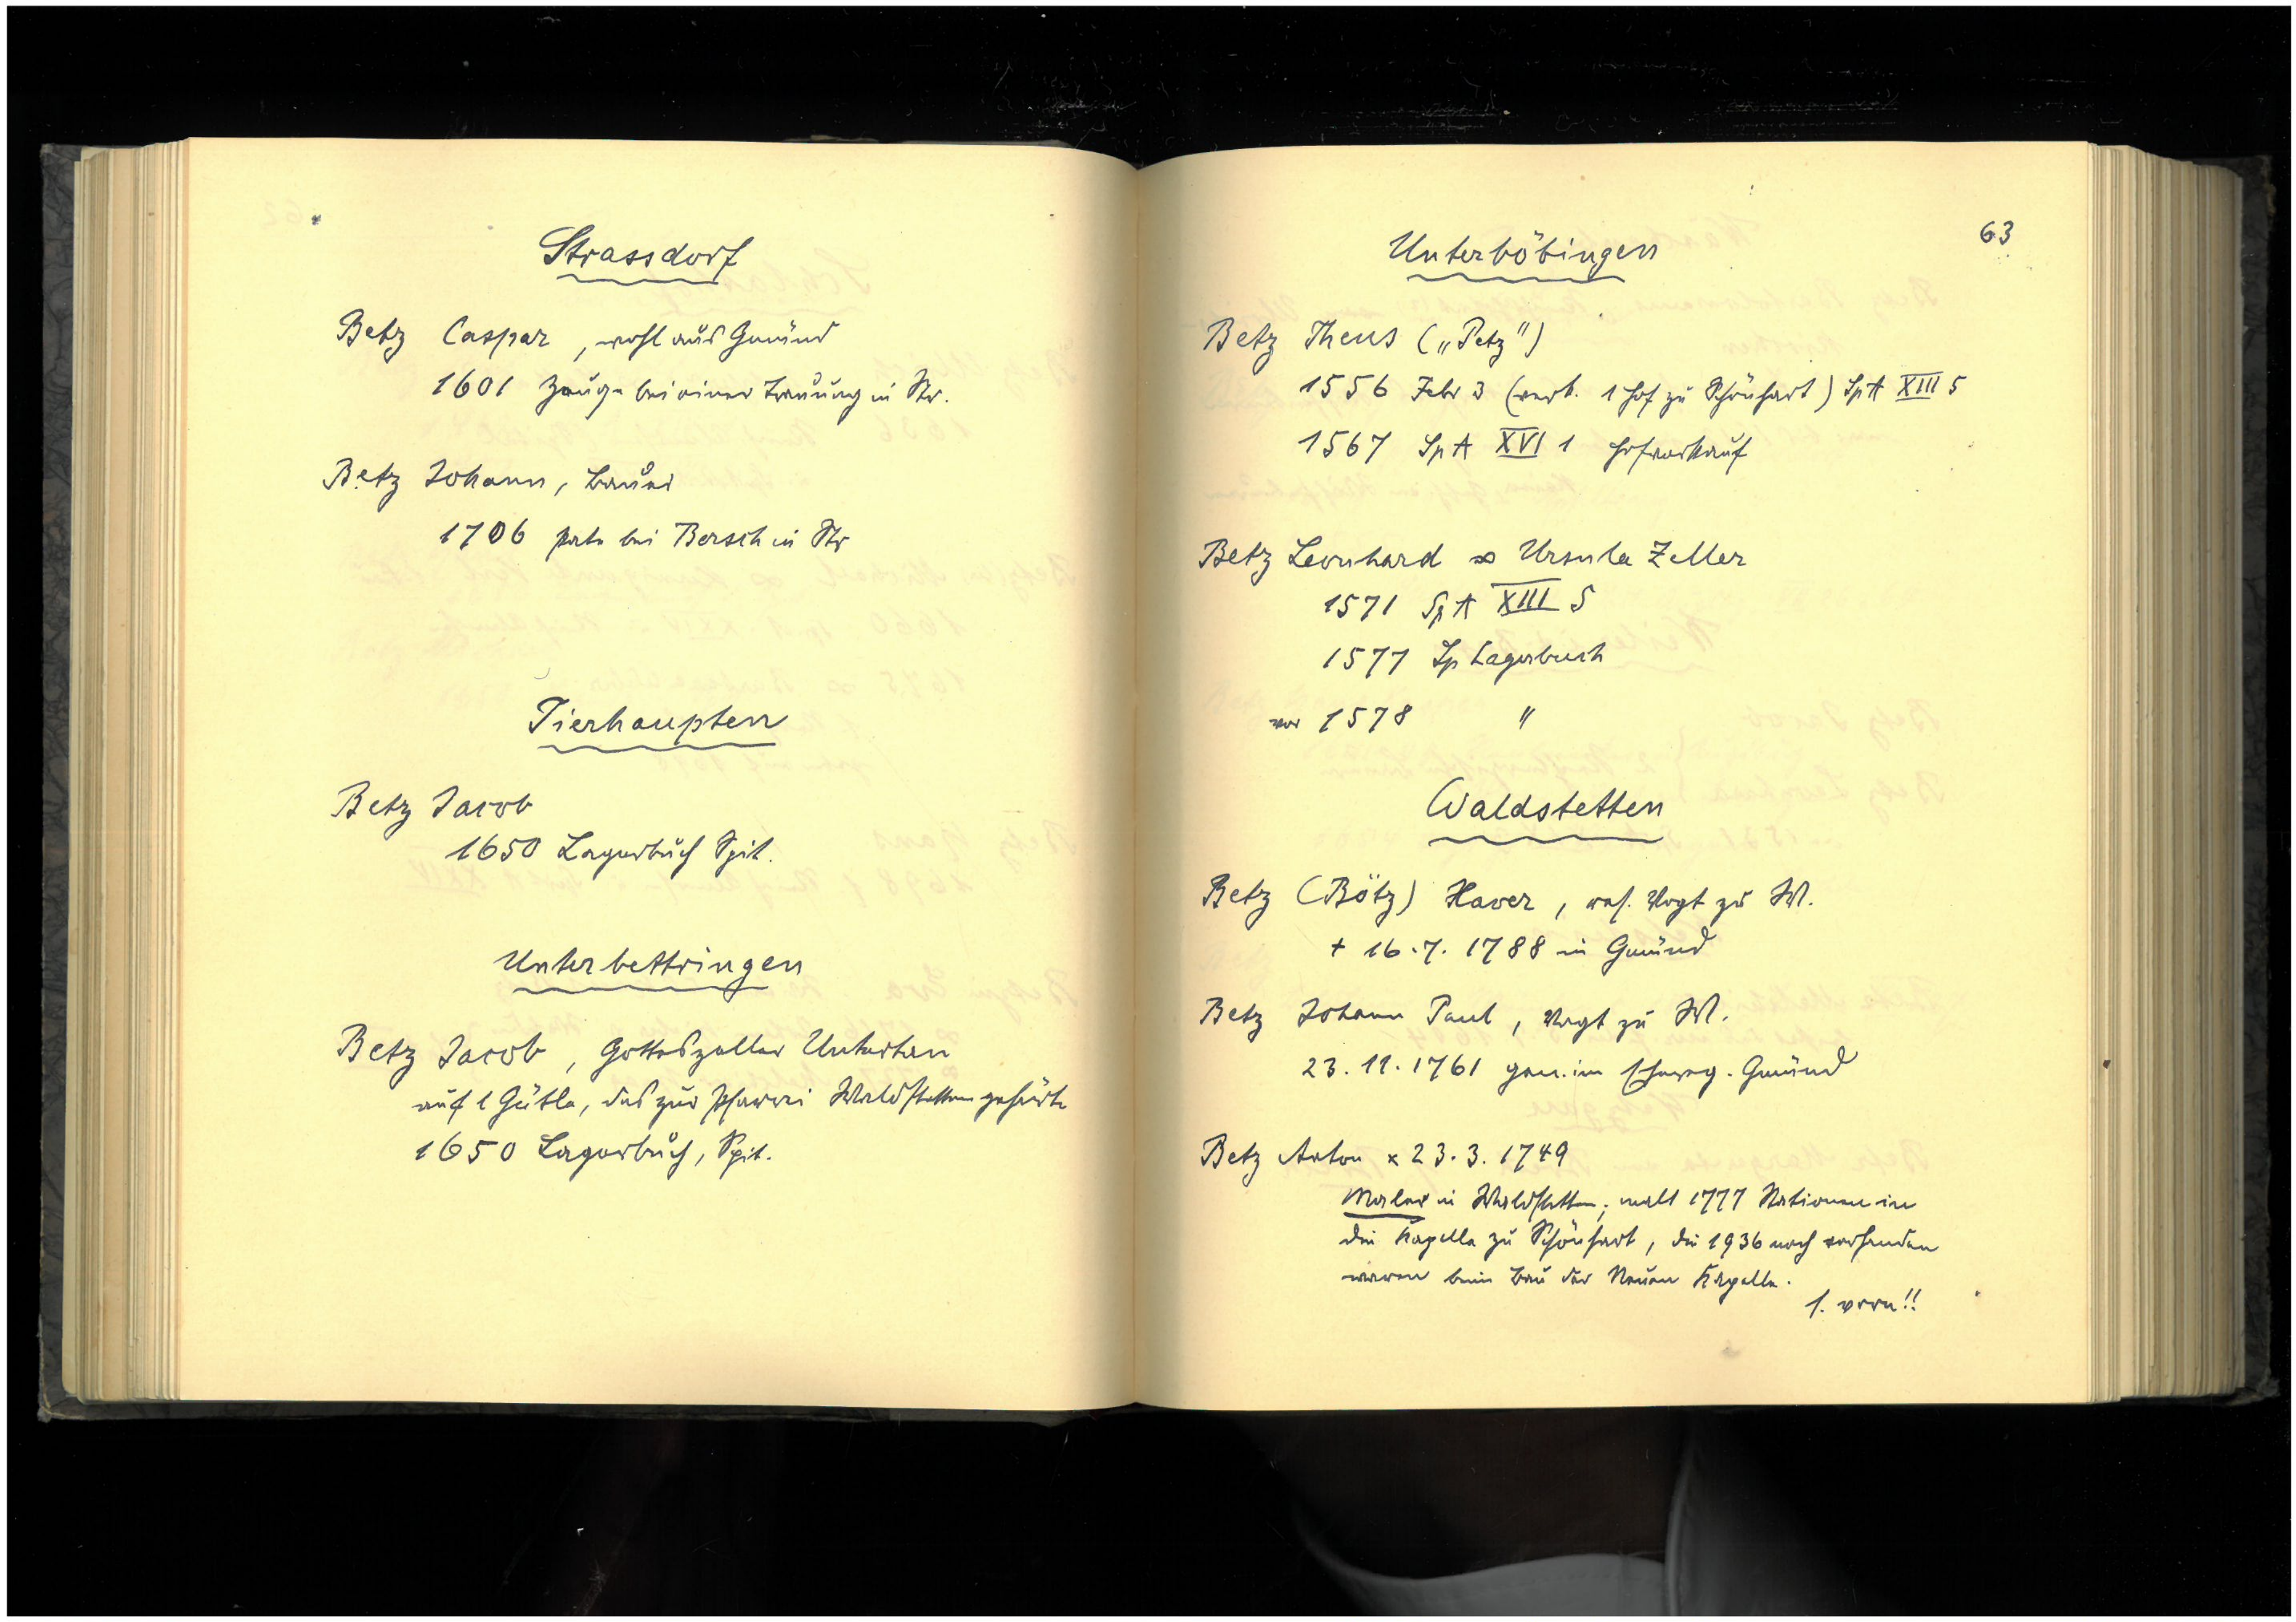 Strassdorf
Betz Caspar, wohl aus Gmünd
1601 Zeuge bei einer Trauung in Str.
Betz Johann, Bauer
1706 Pate bei Bersch in Str
Tierhaupten
Betz Jacob
1650 Lagerbuch Spit.
Unterbettringen
Betz Jacob, Gotteszeller Untertan
auf 1 Gütle, das zur Pfarrei Waldstetten gehörte
1650 Lagerbuch, Spit.
63
Unterböbingen
Betz Theus („Petz")
1556 Febr 3 (verk. 1 Hof zu Schönhart) SpA XIII 5
1567 SpA XVI 1 Hofverkauf
Betz Leonhard ∞ Ursula Zeller
1571 SpA XIII 5
1577 Sp Lagerbuch
vor 1578 "
Waldstetten
Betz (Bötz) Xaver, Vogt zu W.
+ 16.7.1788 in Gmünd
Betz Johann Paul, Vogt zu W.
23.11.1761 gen. im Gmünd
Betz Anton × 23.3.1749
Maler in Waldstetten; malt 1777 Stationen in
die Kapelle zu Schönhart, die 1936 noch vorhanden
waren beim Bau der Neuen Kapelle.
s. vorn!!